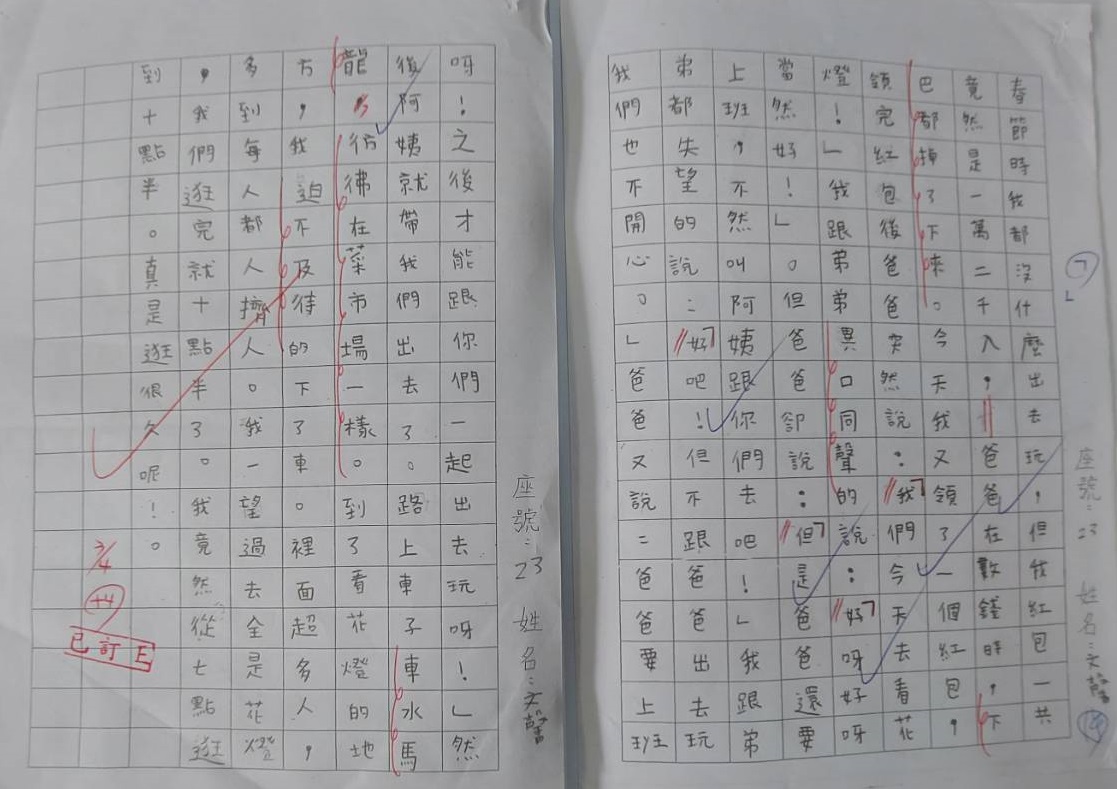 座號：23 姓名：文馨
春節時我都沒什麼出去玩，但我紅包一共
竟然是一萬二千入，爸爸在數錢時，下
巴都掉了下來。今天我又領了一個紅包，
領完紅包後爸爸突然說：「我們今天去看花
燈！」我跟弟弟異口同聲的說：「好呀好呀
當然！好！」。但爸爸卻說：「但是爸爸還要
上班，不然叫阿姨跟你們去吧！」我跟弟
弟都失望的說：「好吧！但不跟爸爸出去玩
我們也不開心。」爸爸又說：爸爸要上班
座號：23 姓名：文馨
呀！之後才能跟你們一起出去玩呀！」然
後阿姨就帶我們出去了。路上車子車水馬
龍，彷彿在菜市場一樣。到了看花燈的地
方，我迫不及待的下了車。裡面超多人，
多到每人都人擠人。我一望過去全是花燈
，我們逛完就十點半了。我竟然從七點逛
到十點半。真是逛很久呢！。
3/4
+4
已訂正